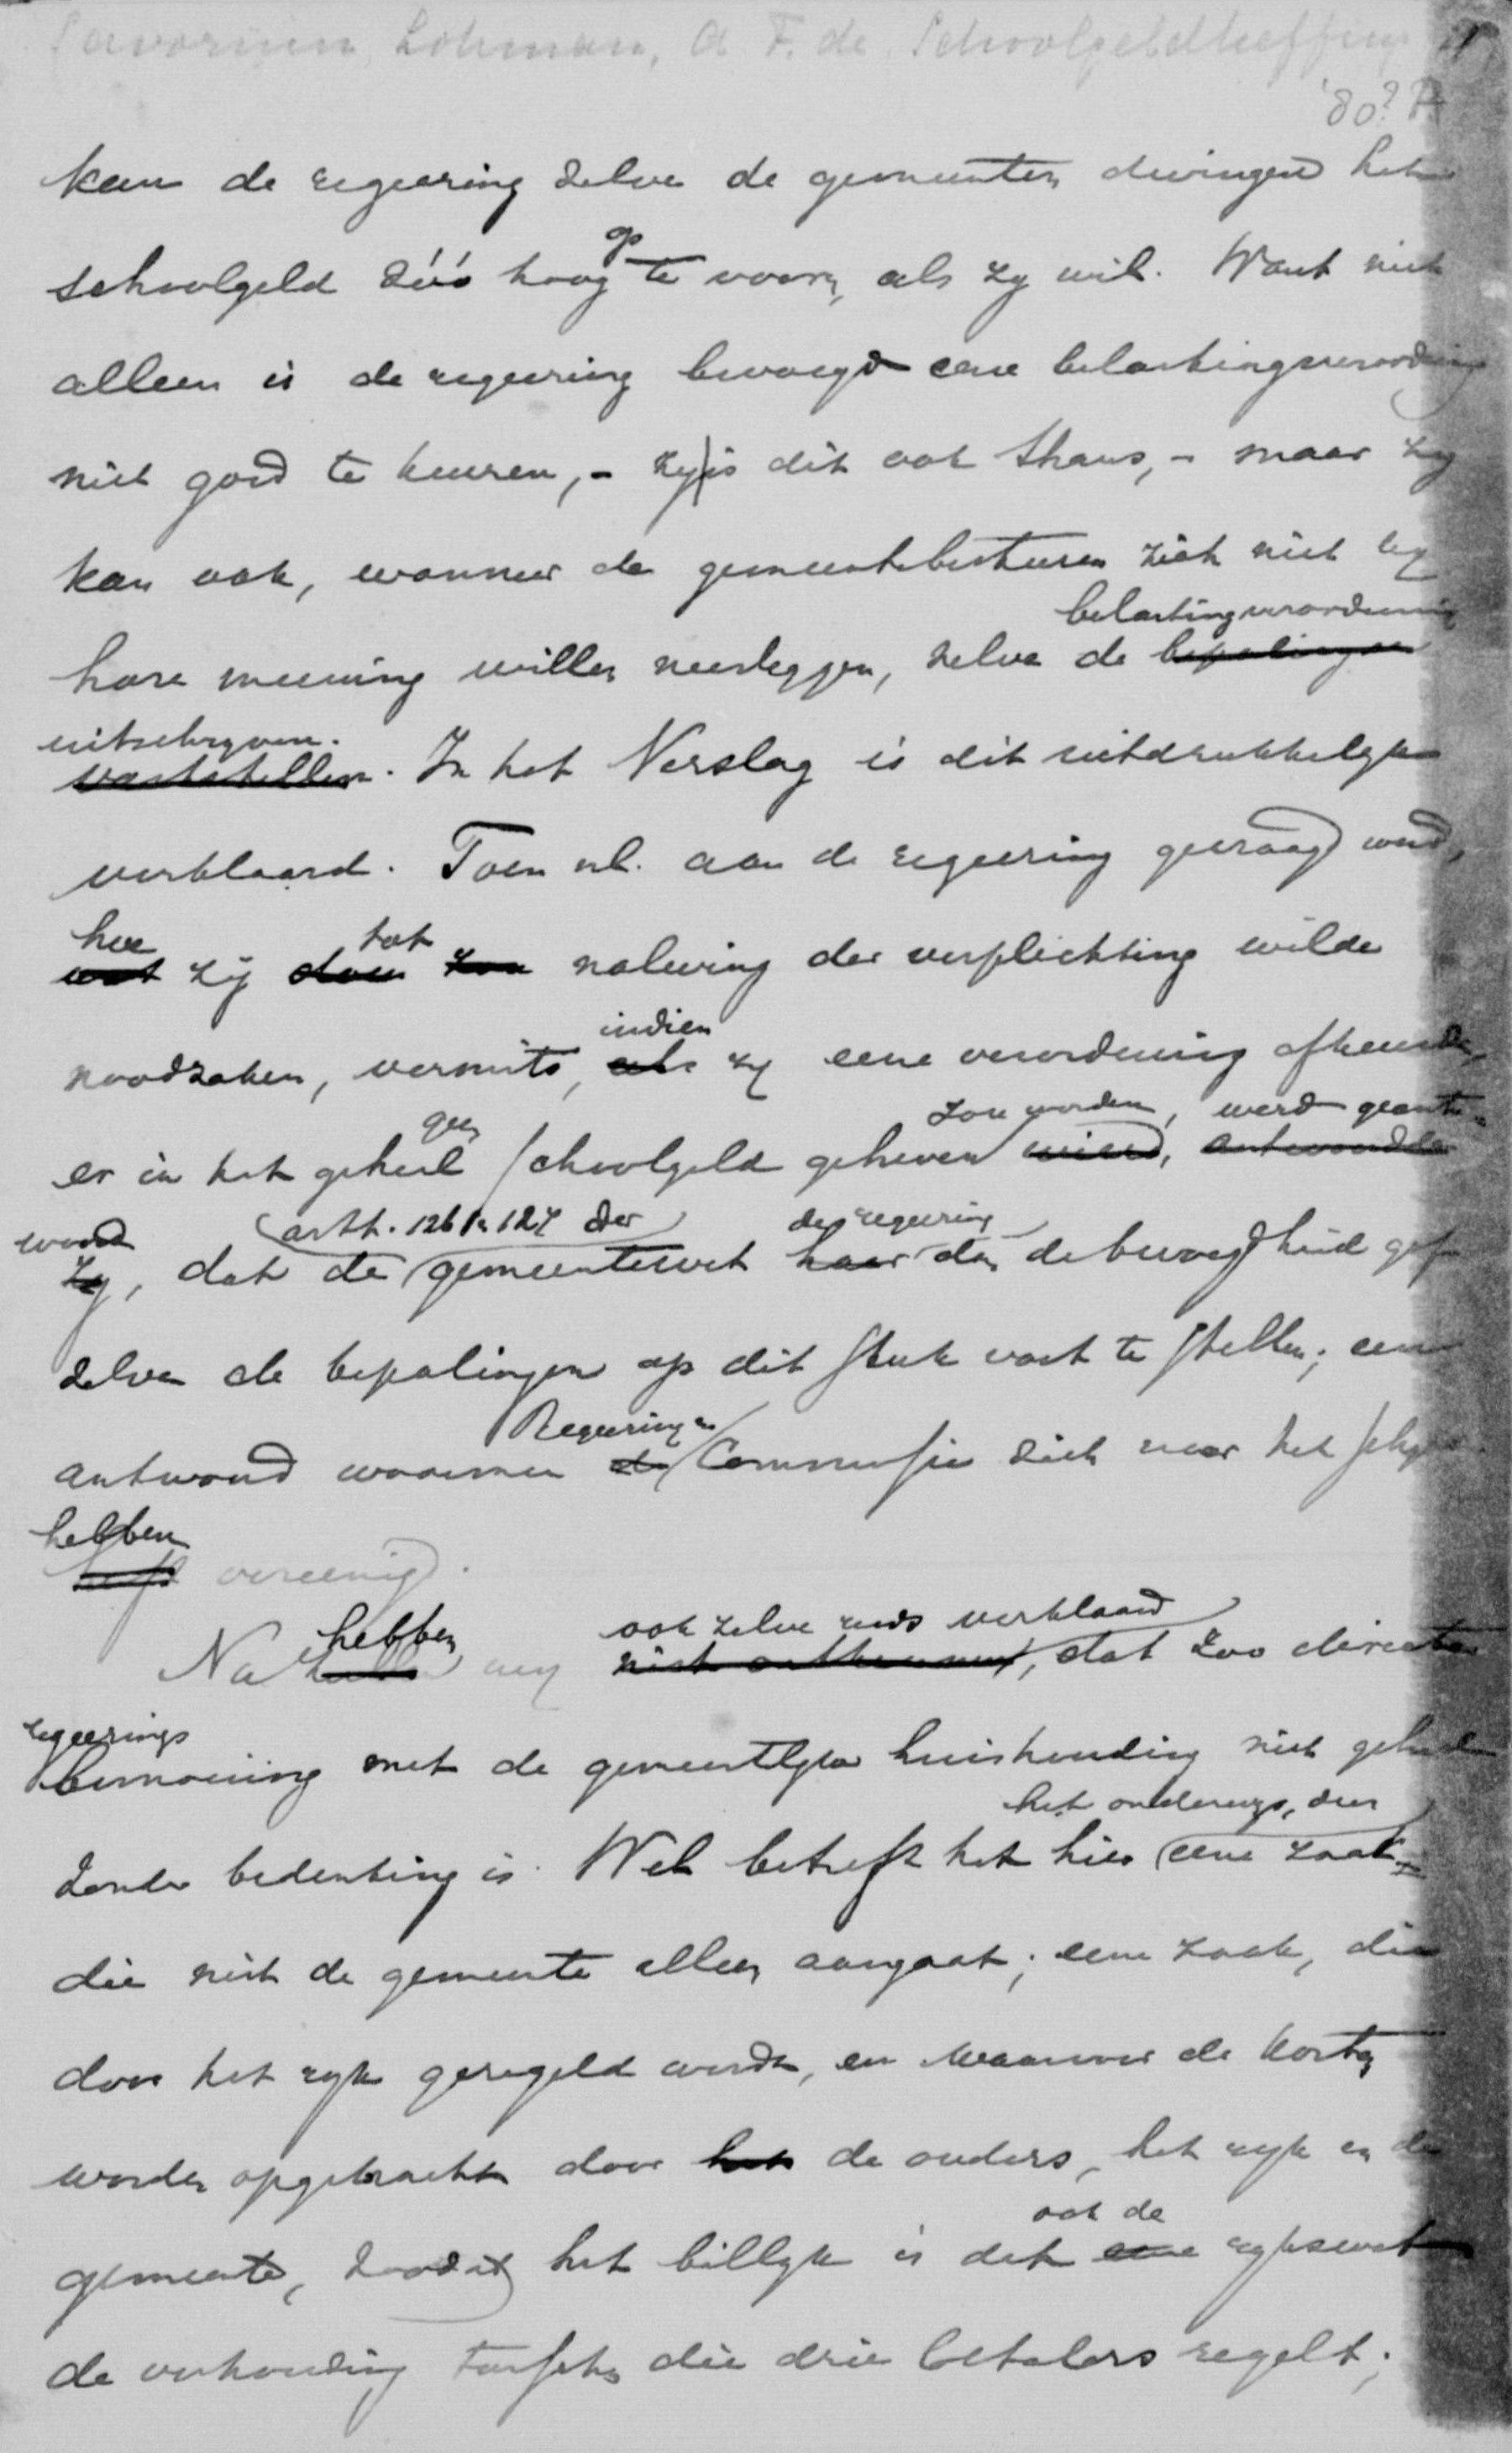 Savornin Lohman, A F. de Schoolgeldheffing
'80?
kan de regeering zelve de gemeenten dwingen het
op
schoolgeld zóó hoog te voeren, als zy wil. Want niet
alleen is de regeering bevoegd eene belastingverordening
niet goed te keuren, - zy is dit ook thans, - maar zy
kan ook, wanneer de gemeentebesturen zich niet by
belastingverordening
hare meening willen neerleggen, zelve de bepalingen
uitschryven.
vaststellen. In het Verslag is dit uitdrukkelyk
verklaard. Toen nl. aan de regeering gevraagd werd,
hoe tot
wat zij doen zou naleving der verplichting wilde
indien
noodzaken, vermits, als zy eene verordening afkeurde,
geen zou worden, werd geant-
er in het geheel schoolgeld geheven wierd, antwoordde
woord artt. 126 en 127 der de regeering
zy, dat de gemeentewet haar dan de bevoegdheid gaf
zelve de bepalingen op dit stuk vast te stellen; een
Regeering en
antwoord waarmee de Commissie zich naar het schynt
hebben
heeft vereenigd.
hebben ook zelve reeds verklaard
Nu wy niet ontkennen, dat zoo directe
regeerings
bemoeiing met de gemeentelyke huishouding niet geheel
het onderwys, dus
zonder bedenking is. Wel betreft het hier eene zaak
die niet de gemeente alleen aangaat; eene zaak, die
door het ryk geregeld wordt, en waarvoor de kosten
worden opgebracht door het de ouders, het ryk en de
ook de
gemeente, zoodat het billyk is dat eene rykswet
de verhouding tusschen die drie betalers regelt;